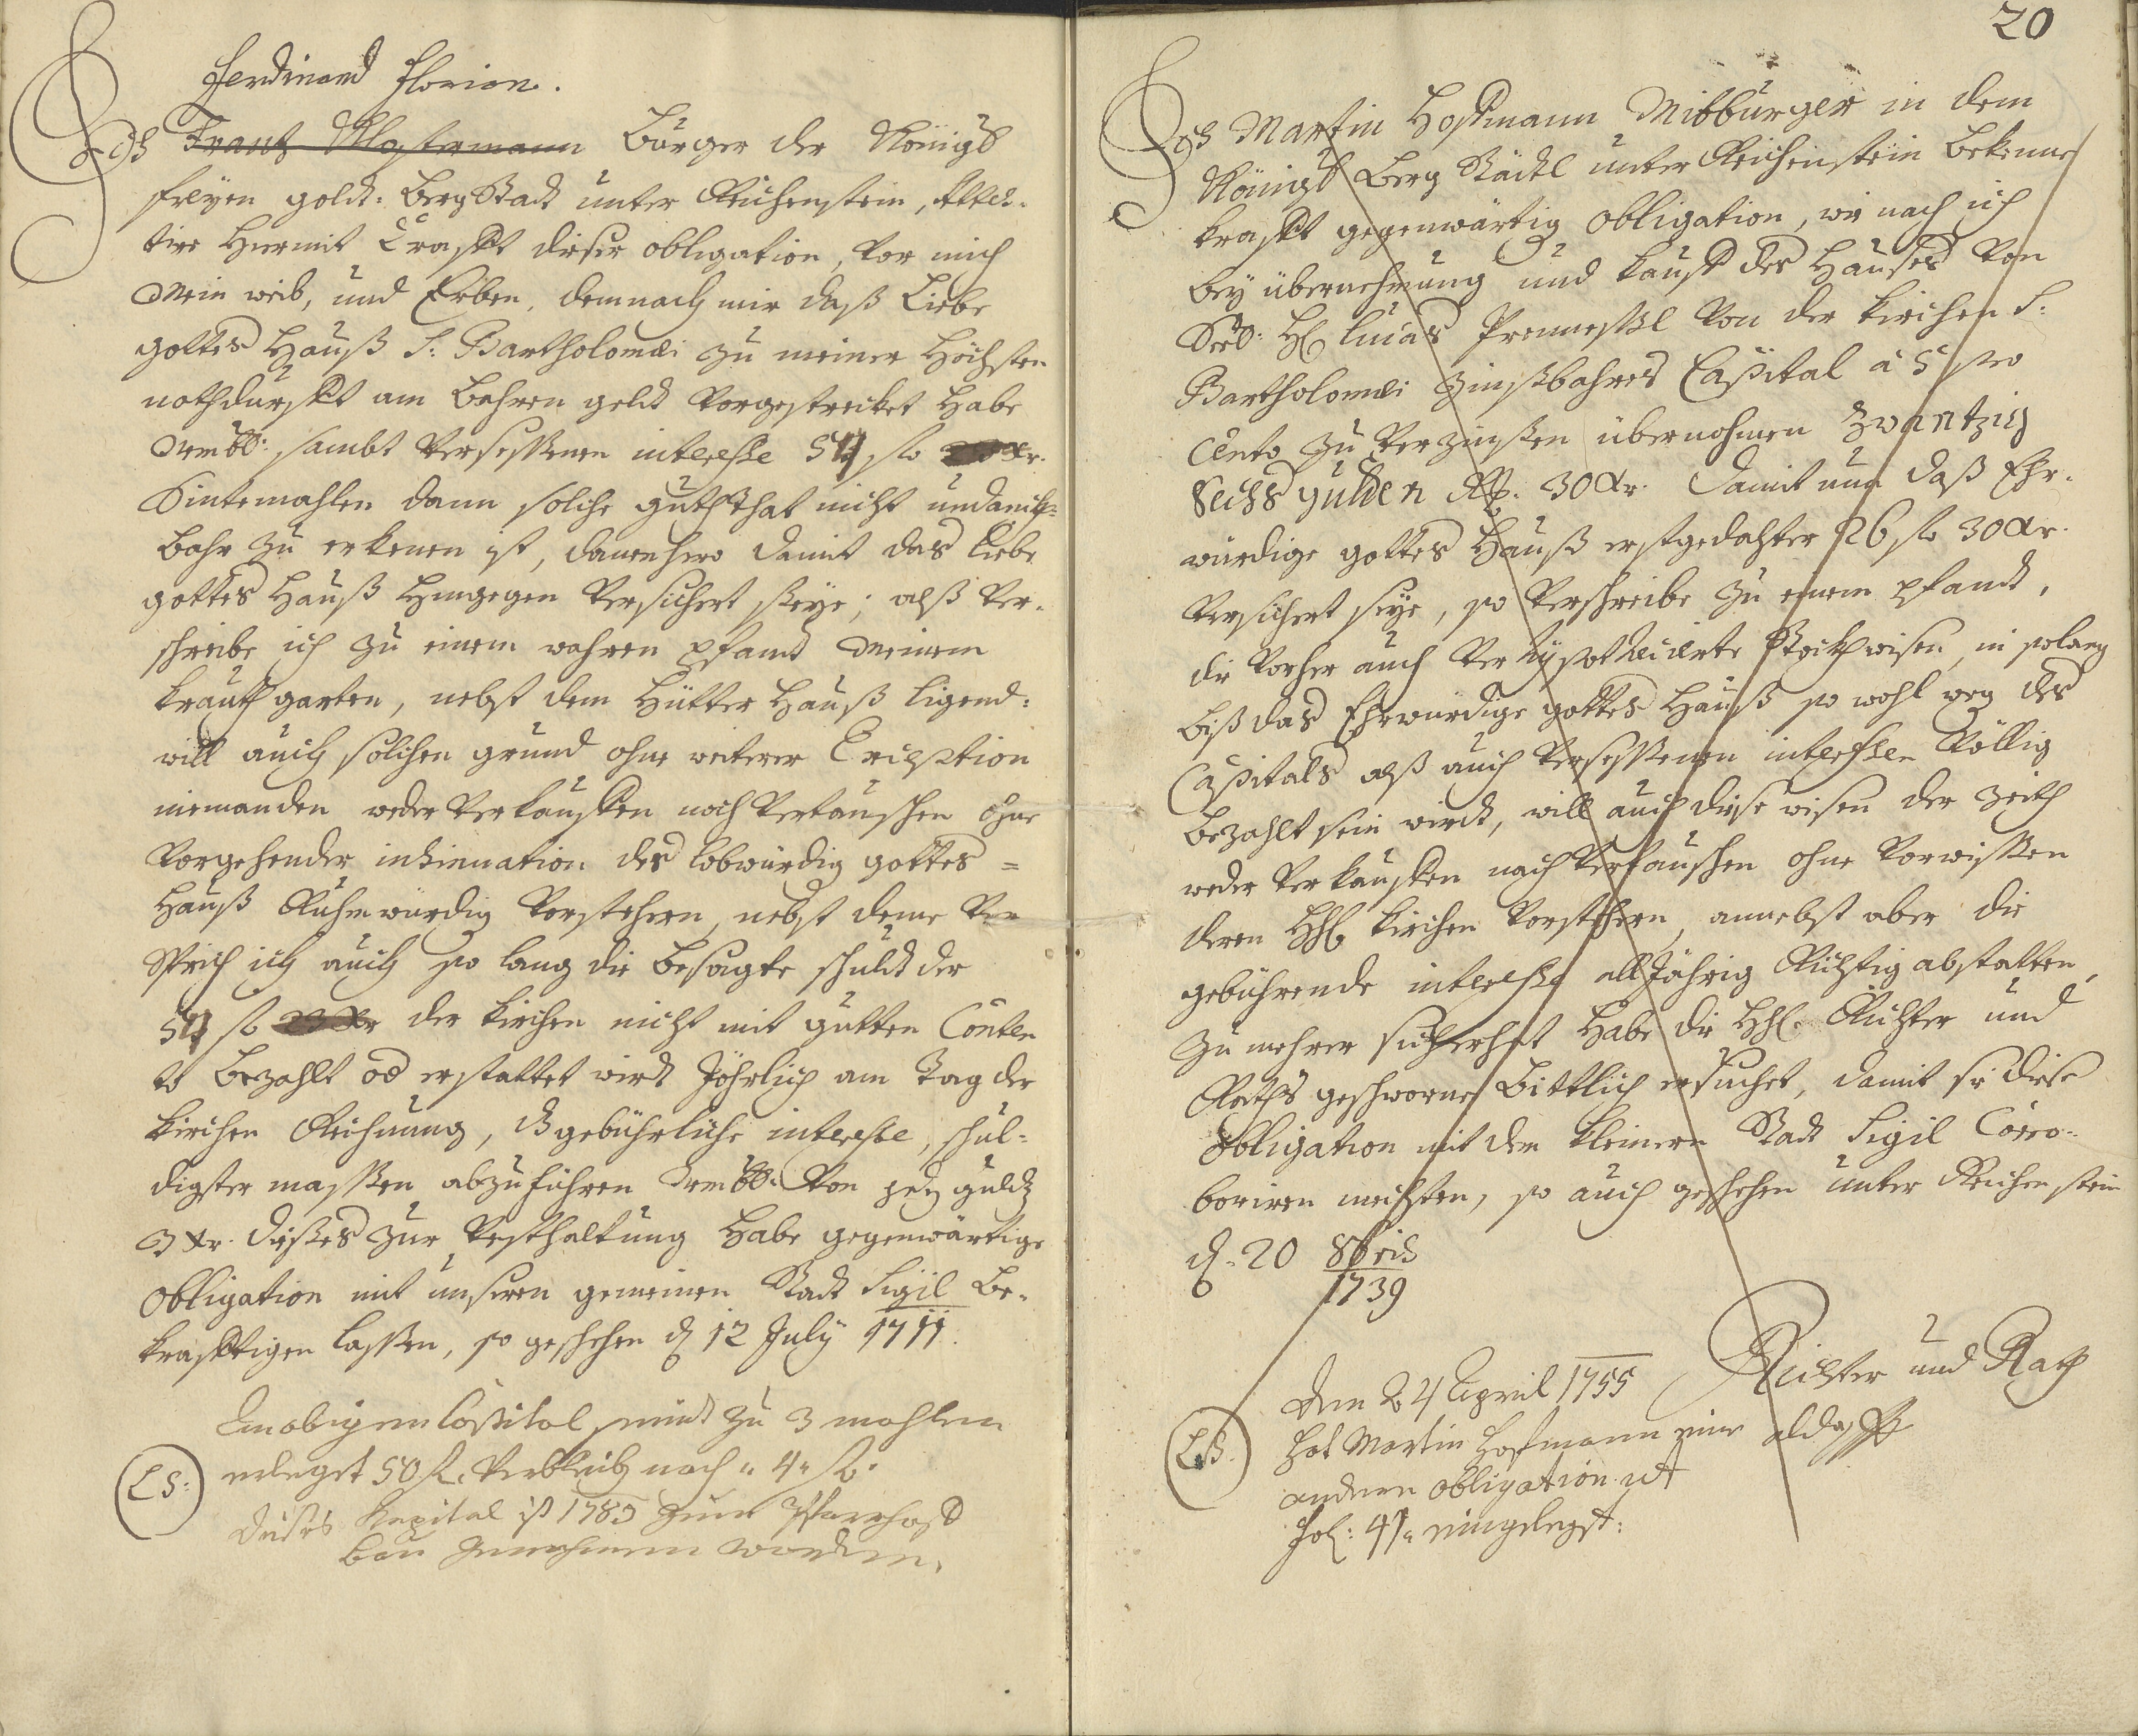 Ferdinand Florian.
Ich Frantz Klostermann Bürger der Königl
freyen goldt: BergStadt unter Reichenstein, Attes-
tire hiermit Crafft dieser obligation, vor mich
Mein weib, und Erben, demnach mir daß Liebe
gottes Hauß S: Bartholomæi zu meiner Höchsten
nothdurfft am bahren geldt vorgestrecket habe
Nembl: sambt versessenen interesse 54 fl xr.
Sintemahlen dann solche gutthat nicht undanckh-
bahr zu erkenen ist, danenhero damit das Liebe
gottes Hauß hingegen versichert seye; alß ver-
schreibe ich zu einem wahren pfandt Meinem
krauth garten, nebst dem Hütter Hauß ligend:
will auch solchen grund ohne weiterer Exception
niemanden weder verkauffen noch vertauschen ohne
vorgehender insinuation des lobwürdig gottes =
Hauß Ruhmwürdig vorstehern, nebst deme ver
Sprich ich auch so lang die besagte schuldt der
54 fl der kirchen nicht mit gutten Conten
to bezahlt od erstattet wirdt Jährlich am tag der
kirchen Reihnung, gebührliche interesse, schul-
digster massen abzuführen Nembl: von jedz guldz
3 Xr. dießes zur vesthaltung habe gegenwärtige
Obligation mit unseren gemeinen Stadt Sigil be-
kräfftigen lassen, so geschehen d 12 July 1711.
An obigem Capital seind zu 3 mahlen
LS: erlegt 50 fl. verbleib noch " 4 " fl.
Dieses Kapital ist 1783 zum Pfarrhof
bau genohmen worden.
20
Ich Martin Hoffmann Mitbürger in dem
Königl Berg Städtl unter Reichenstein bekenne
krafft gegenwärtig obligation, wie nach ich
bey übernehmung und kauff des Haußes von
Seel: H Lucas von der kirchen S:
Bartholomæi zinßbahres Capital à 5 pro
Cento zu verzinßen übernohmen zwantzig
Sechs gulden Rh. 30 Xr. damit nun daß Ehr-
würdige gottes Hauß erstgedachter 26 fl 30 Xr.
versichert seye, so verschreibe zu einem pfandt,
die vorher auch verhypothecierte wisen, in solang
biß das Ehrwürdige gottes Hauß so wohl weg des
Capitals alß auch versessenen interessen völlig
bezahlt sein wirdt, will auch diese wisen der zeith
weder verkauffen noch vertauschen ohne vorwissen
deren HH kirchen vorstehern, annebst aber die
gebührende interesse alljährig Richtig abstatten,
zu mehrer sicherheit habe die HH. Richter und
Raths geschworne bittlich ersuchet, damit sie diese
Obligation mit dem kleinern Stadt Sigil Corro-
boriren mechten, so auch geschehen unter Reichenstein
d. 20 8bris
1739
Richter und Rath
aldasse
LS. Den 24 April 1755
hat Martin Hofmann eine
andere obligation ut
fol: 41 eingelegt: